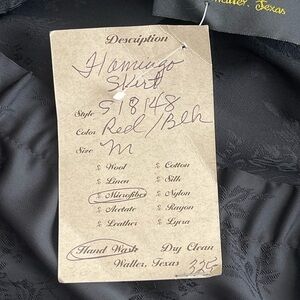 Waller, Texas
Description
Flamingo
Skirt
Style S 8148
Color Red/Blk
Size M
Wool Cotton
Linen Silk
Microfiber Nylon
Acetate Rayon
Leather Lycra
Hand Wash Dry Clean
Waller, Texas
325